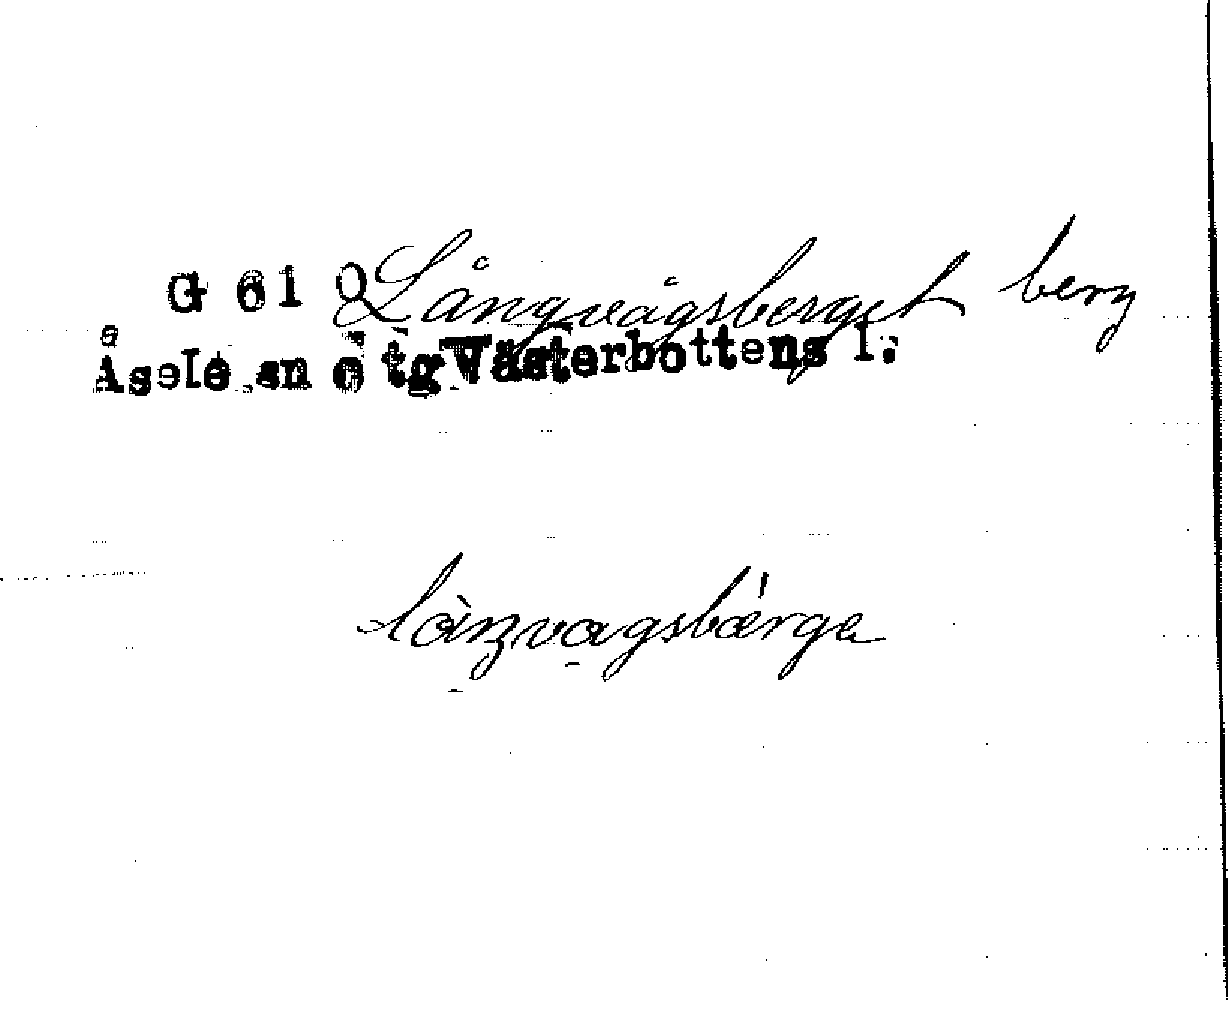 G 61 Q Långvågsberget berg
Åsele sn o tg Västerbottens l.
làŋvagsbǽrge